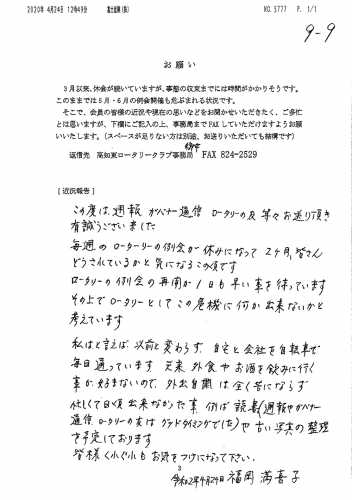 2020年 4月24日 12時49分
NO. 5777 P. 1/1
9-9
お願い
3月以来、休会が続いていますが、事態の収束までには時間がかかりそうです。
このままでは5月・6月の例会開催も危ぶまれる状況です。
そこで、会員の皆様の近況や現在の思いなどをお聞かせいただきたく、ご多忙
とは思いますが、下欄にご記入の上、事務局までFAXしていただけますようお願
いいたします。(スペースが足りない方は別途、お送りいただいても結構です)
返信先 高知東ロータリークラブ事務局 FAX 824-2529
[近況報告]
この度は週報 ガバナー通信 ロータリーの友 等々お送り頂き
有難うございました
毎週のロータリーの例会が休みになって2ヶ月、皆さん
どうされているかと気になるこの頃です
ロータリーの例会の再開が1日も早い事を待っています
その上でロータリーとしてこの危機に何か出来ないかと
考えています
私はと言えば 以前と変わらず、自宅と会社を自転車で
毎日通っています 元来 外食やお酒を飲みに行く
事が好きないので、外出自粛は全く苦にならず
忙しくて日頃出来なかった事 例ば 読書(週報やガバナー
通信 ロータリーの友は グッドタイミングでした)や古い写真の整理
を予定しております
皆様くれぐれもお気をつけになって下さい。
3
令和2年4月24日 福岡 満喜子